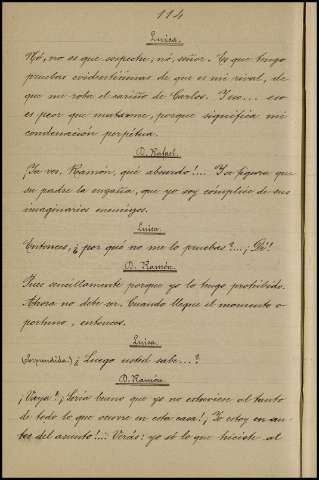 114
Luisa.
Nó, no es que sospeche; nó, señor. Es que tengo
pruebas evidentísimas de que es mi rival, de
que me roba el cariño de Carlos. Y eso... eso
es peor que matarme, porque significa mi
condenación perpétua.
D. Rafael.
¡Ya ves, Ramón, qué absurdo!... Se figura que
su padre la engaña, que yo soy cómplice de sus
imaginarios enemigos.
Luisa.
Entonces, ¿por qué no me lo pruebas?... ¡Dí!
D. Ramón.
Pues sencillamente porque yo lo tengo prohibido.
Ahora no debe ser. Cuando llegue el momento o-
portuno, entonces.
Luisa.
(Sorprendida.) ¿Luego usted sabe...?
D. Ramón.
¡Vaya! ¡Sería bueno que yo no estuviera al tanto
de todo lo que ocurre en esta casa! ¡Yo estoy en an-
tes del asunto!... Verás: yo sé lo que hiciste al